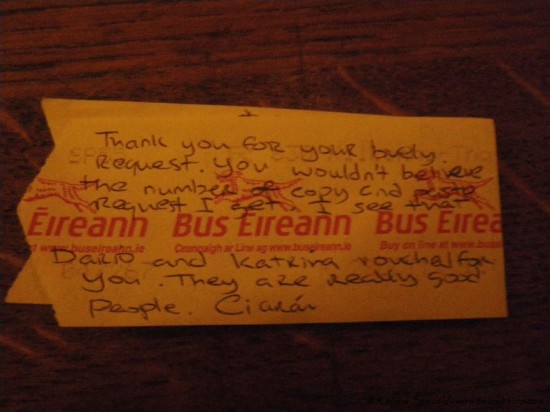 Thank you for your lovely
Request. You wouldn't believe
the number of copy and paste
Request I get. I see that
Éireann Bus Éireann Bus Éirea
www.buseireann.ie Ceannaigh ar Líne ag www.buseireann.ie Buy on line at www.buse
Dario and Katrina vouched for
you. They are really good
People. Ciarán